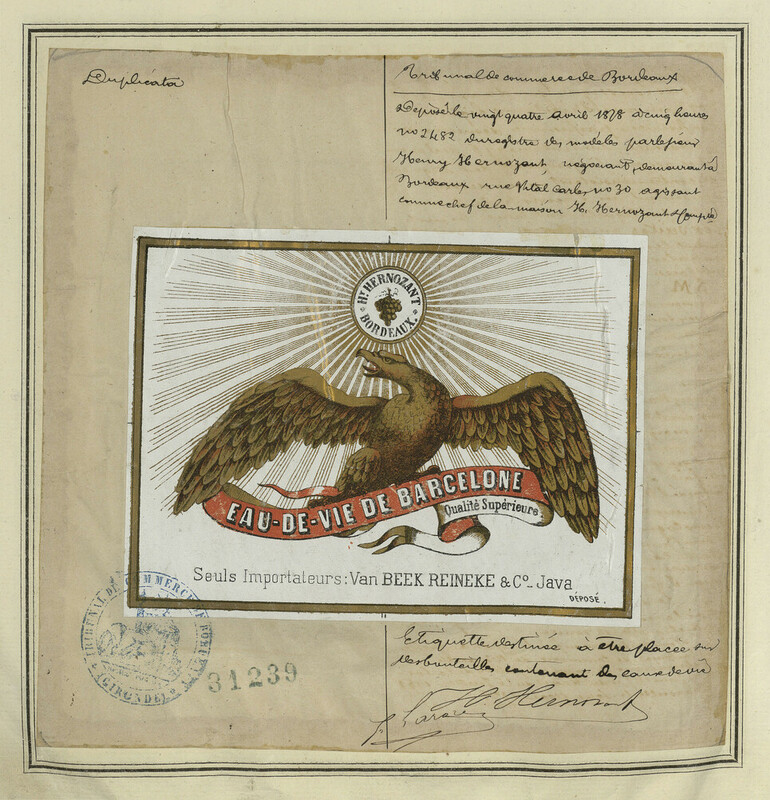 Duplicata
Tribunal de commerce de Bordeaux
Déposé le vingt quatre avril 1878 à cinq heures
no 2482 du registre des modèles par le sieur
Henry Hernozant, négociant, demeurant à
Bordeaux rue Vital Carles no 30 agissant
comme chef de la maison H. Hernozant & Compie
HY. HERNOZANT
BORDEAUX.
EAU-DE-VIE DE BARCELONE
Qualité Supérieure.
Seuls Importateurs: Van BEEK REINEKE & Co. Java
DÉPOSÉ.
TRIBUNAL DE COMMERCE DE BORDEAUX
(GIRONDE)
31239
Etiquette destinée à être placée sur
des bouteilles contenant des eaux de vie
H. Hernozant